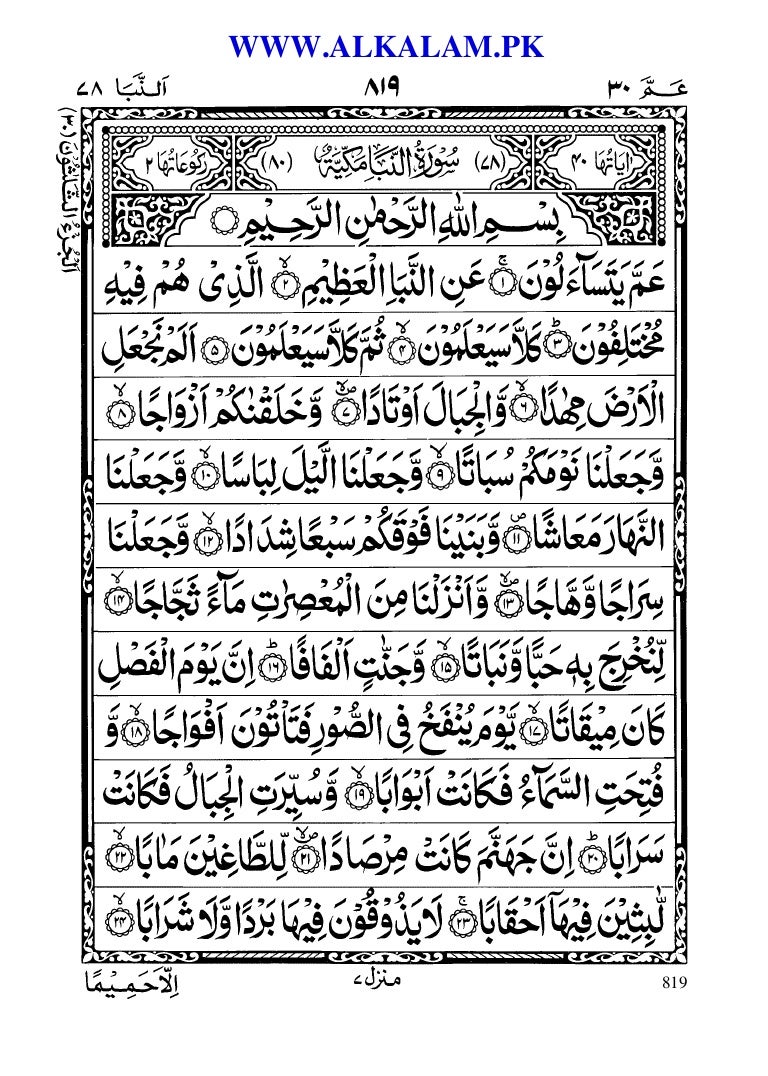 WWW.ALKALAM.PK
عَمَّ ٣٠
٨١٩
اَلنَّبَا ٧٨
اَلْجُزْءُ الثَّلٰثُوْنَ (٣٠)
اٰيَاتُهَا ٤٠
(٧٨) سُوْرَةُ النَّبَا مَكِّيَّةٌ (٨٠)
رُكُوْعَاتُهَا ٢
بِسْمِ اللّٰهِ الرَّحْمٰنِ الرَّحِيْمِ
عَمَّ يَتَسَآءَلُوْنَ ١ عَنِ النَّبَاِ الْعَظِيْمِ ٢ الَّذِىْ هُمْ فِيْهِ
مُخْتَلِفُوْنَ ٣ كَلَّا سَيَعْلَمُوْنَ ٤ ثُمَّ كَلَّا سَيَعْلَمُوْنَ ٥ اَلَمْ نَجْعَلِ
الْاَرْضَ مِهٰدًا ٦ وَّالْجِبَالَ اَوْتَادًا ٧ وَّخَلَقْنٰكُمْ اَزْوَاجًا ٨
وَّجَعَلْنَا نَوْمَكُمْ سُبَاتًا ٩ وَّجَعَلْنَا الَّيْلَ لِبَاسًا ١٠ وَّجَعَلْنَا
النَّهَارَ مَعَاشًا ١١ وَّبَنَيْنَا فَوْقَكُمْ سَبْعًا شِدَادًا ١٢ وَّجَعَلْنَا
سِرَاجًا وَّهَّاجًا ١٣ وَّاَنْزَلْنَا مِنَ الْمُعْصِرٰتِ مَآءً ثَجَّاجًا ١٤
لِّنُخْرِجَ بِهٖ حَبًّا وَّنَبَاتًا ١٥ وَّجَنّٰتٍ اَلْفَافًا ١٦ اِنَّ يَوْمَ الْفَصْلِ
كَانَ مِيْقَاتًا ١٧ يَّوْمَ يُنْفَخُ فِى الصُّوْرِ فَتَاْتُوْنَ اَفْوَاجًا ١٨ وَّ
فُتِحَتِ السَّمَآءُ فَكَانَتْ اَبْوَابًا ١٩ وَّسُيِّرَتِ الْجِبَالُ فَكَانَتْ
سَرَابًا ٢٠ اِنَّ جَهَنَّمَ كَانَتْ مِرْصَادًا ٢١ لِّلطَّاغِيْنَ مَاٰبًا ٢٢
لّٰبِثِيْنَ فِيْهَآ اَحْقَابًا ٢٣ لَا يَذُوْقُوْنَ فِيْهَا بَرْدًا وَّلَا شَرَابًا ٢٤
819
منزل ٧
اِلَّا حَمِيْمًا